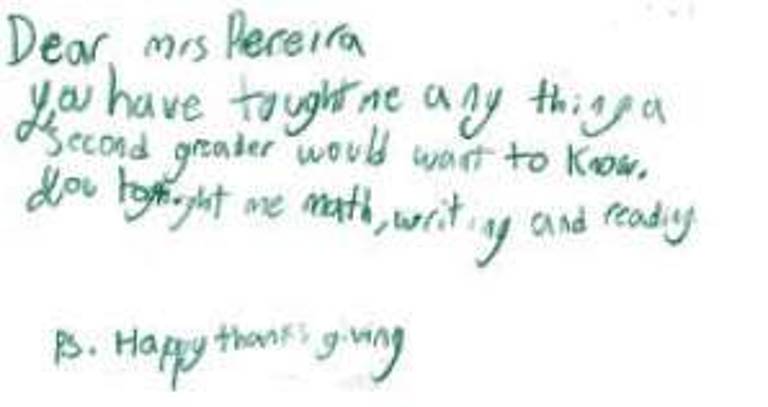 Dear mrs Pereira
you have tought me any thing a
second greader would want to know.
You tought me math, writing and reading
Ps. Happy thanks giving